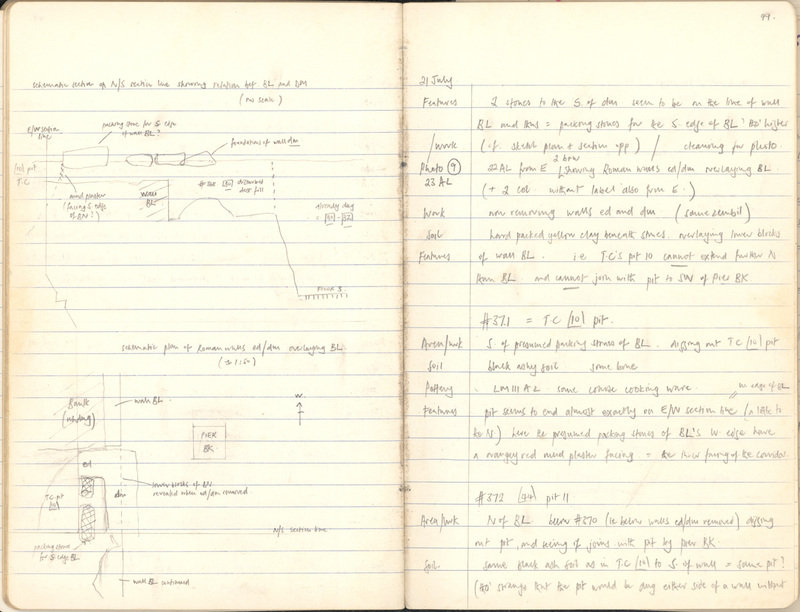 schematic section of N/S section line showing relation bet BL and DM
(no scale)
E/W section line
packing stone for S edge of wall BL?
foundations of wall dm
T.C
mud plaster
(facing S edge of BN?)
wall BL
disturbed dest fill
already dug
FLOOR
schematic plan of Roman walls ed/dm overlaying BL.
(± 1:50)
Baulk
wall BL
N
PIER
BK
ed
T.C pit
10
dm
lower blocks of BN
revealed when ed/dm removed
N/S section line
packing stone
for S edge BL
wall BL continued
99.
21 July
Features 2 stones to the S. of dm seem to be on the line of wall
BL and thus = packing stones for the S. edge of BL? tho' higher
/work (cf. sketch plan & section opp) / cleaning for photo
Photo 9 22AL from E 2 b&w showing Roman walls ed/dm overlaying BL.
23 AL (+ 2 col. without label also from E.)
Work now removing walls ed and dm (same zembil)
Soil hard packed yellow clay beneath stones. overlaying lower blocks
Features of wall BL. i.e T.C's pit 10 cannot extend further N
than BL and cannot join with pit to SW of pier BK
#371 = T.C /10/ pit.
Area/work S. of presumed packing stones of BL. digging out T.C /10/ pit
Soil black ashy soil some bone
Pottery LM III A2 some coarse cooking ware.
Features pit seems to end almost exactly on E/W section line (a little to
the N) here the presumed packing stones of BL's W edge have
// w. edge of BL
a orangey red mud plaster facing = the in W facing of the corridor
#372 pit 11
Area/work N of BL. below #370 (ie below walls ed/dm removed) digging
out pit, and seeing if joins with pit by pier BK.
Soil. same black ash soil as in T.C /10/ to S. of wall = same pit?
(tho' strange that the pit would be dug either side of a wall without